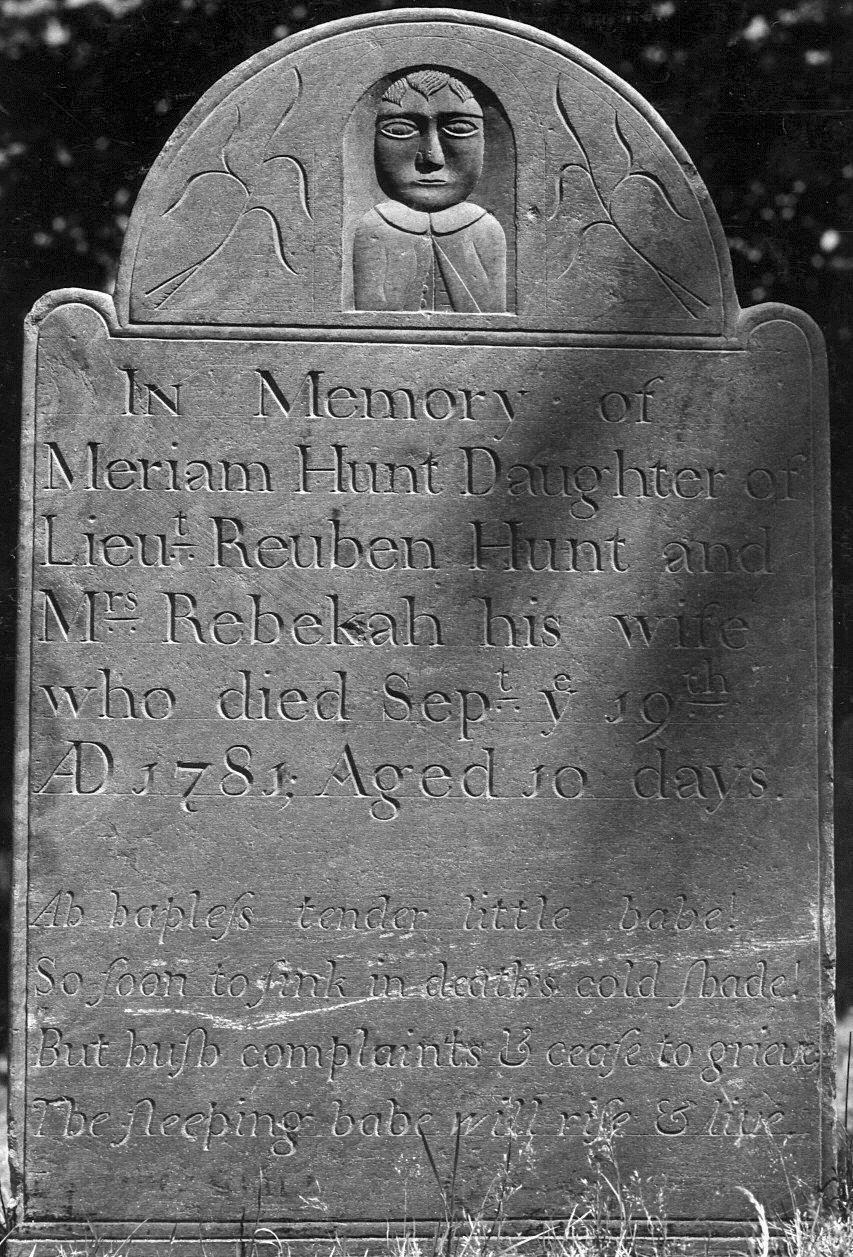 In Memory of
Meriam Hunt Daughter of
Lieut. Reuben Hunt and
Mrs. Rebekah his wife
who died Sept. ye 19th.
ÆD 1781; Aged 10 days.
Ah hapleſs tender little babe!
So ſoon to ſink in death's cold ſhade!
But huſh complaints & ceaſe to grieve
The ſleeping babe will riſe & live.